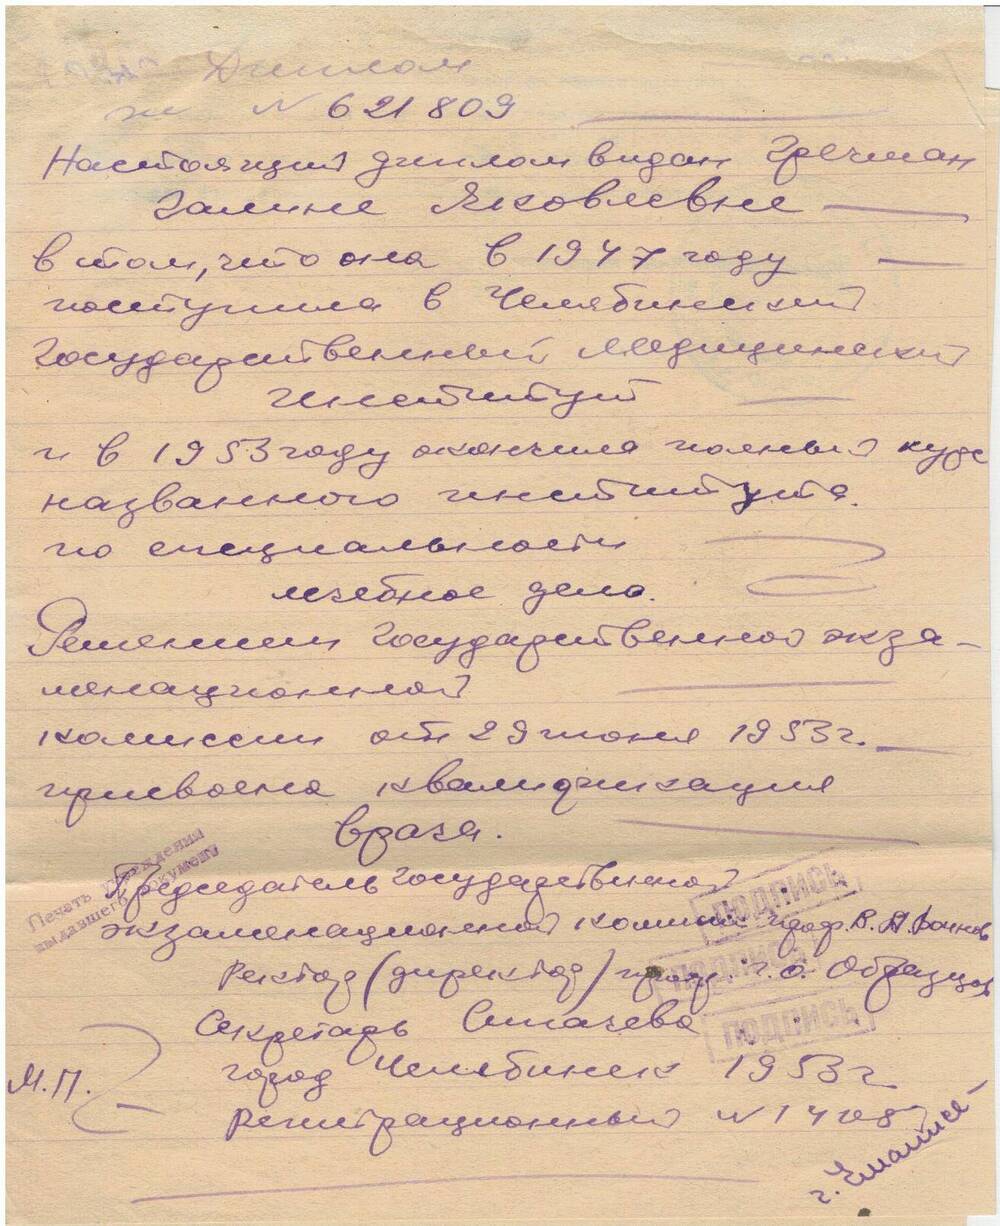 Диплом
№ 621809
Настоящий диплом выдан Гречман
Галине Яковлевне
в том, что она в 1947 году
поступила в Челябинский
Государственный медицинский
институт
и в 1953 году окончила полный курс
названного института.
по специальности
лечебное дело.
Решением Государственной экза-
менационной
комиссии от 29 июня 1953г.
присвоена квалификация
врача.
Печать учреждения
выдавшего документ
Председатель Государственной
экзаменационной комиссии проф. В. А.
ПОДПИСЬ
Ректор (директор) проф. Образцов
ПОДПИСЬ
Секретарь
ПОДПИСЬ
город Челябинск 1953г
М.П.
Регистрационный №